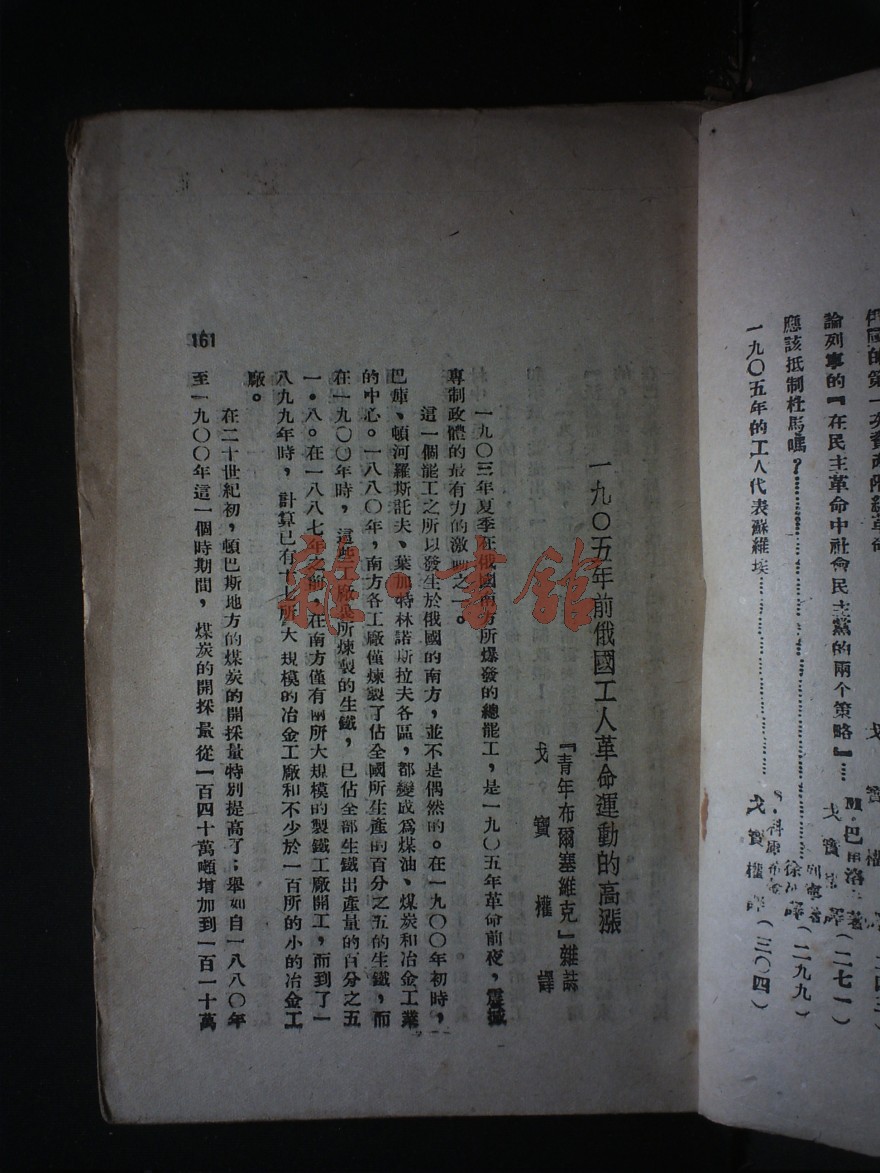 論列寧的『在民主革命中社會民主黨的兩个策略』…
戈寶權譯(二七一)
應該抵制杜馬嗎?……………………
列寧著
徐冰譯(二九九)
一九〇五年的工人代表蘇維埃……………………
戈寶權譯(三〇四)
一九〇五年前俄國工人革命運動的高漲
『青年布爾塞維克』雜誌
戈寶權譯
一九〇三年夏季在俄國南方所爆發的總罷工,是一九〇五年革命前夜,震撼
專制政體的最有力的激動之一。
這一個罷工之所以發生於俄國的南方,並不是偶然的。在一九〇〇年初時,
巴庫、頓河羅斯託夫、葉加特林諾斯拉夫各區,都變成爲煤油、煤炭和冶金工業
的中心。一八八〇年,南方各工廠僅煉製了佔全國所生產的百分之五的生鐵,而
在一九〇〇年時,這些工廠裏所煉製的生鐵,已佔全部生鐵出產量的百分之五
一·八。在一八八七年之前,在南方僅有兩所大規模的製鐵工廠開工,而到了一
八九九年時,計算已有十七所大規模的冶金工廠和不少於一百所的小的冶金工
廠。
在二十世紀初,頓巴斯地方的煤炭的開採量特別提高了;舉如自一八八〇年
至一九〇〇年這一個時期間,煤炭的開採量從一百四十萬噸增加到一百一十萬
161
雜·書館